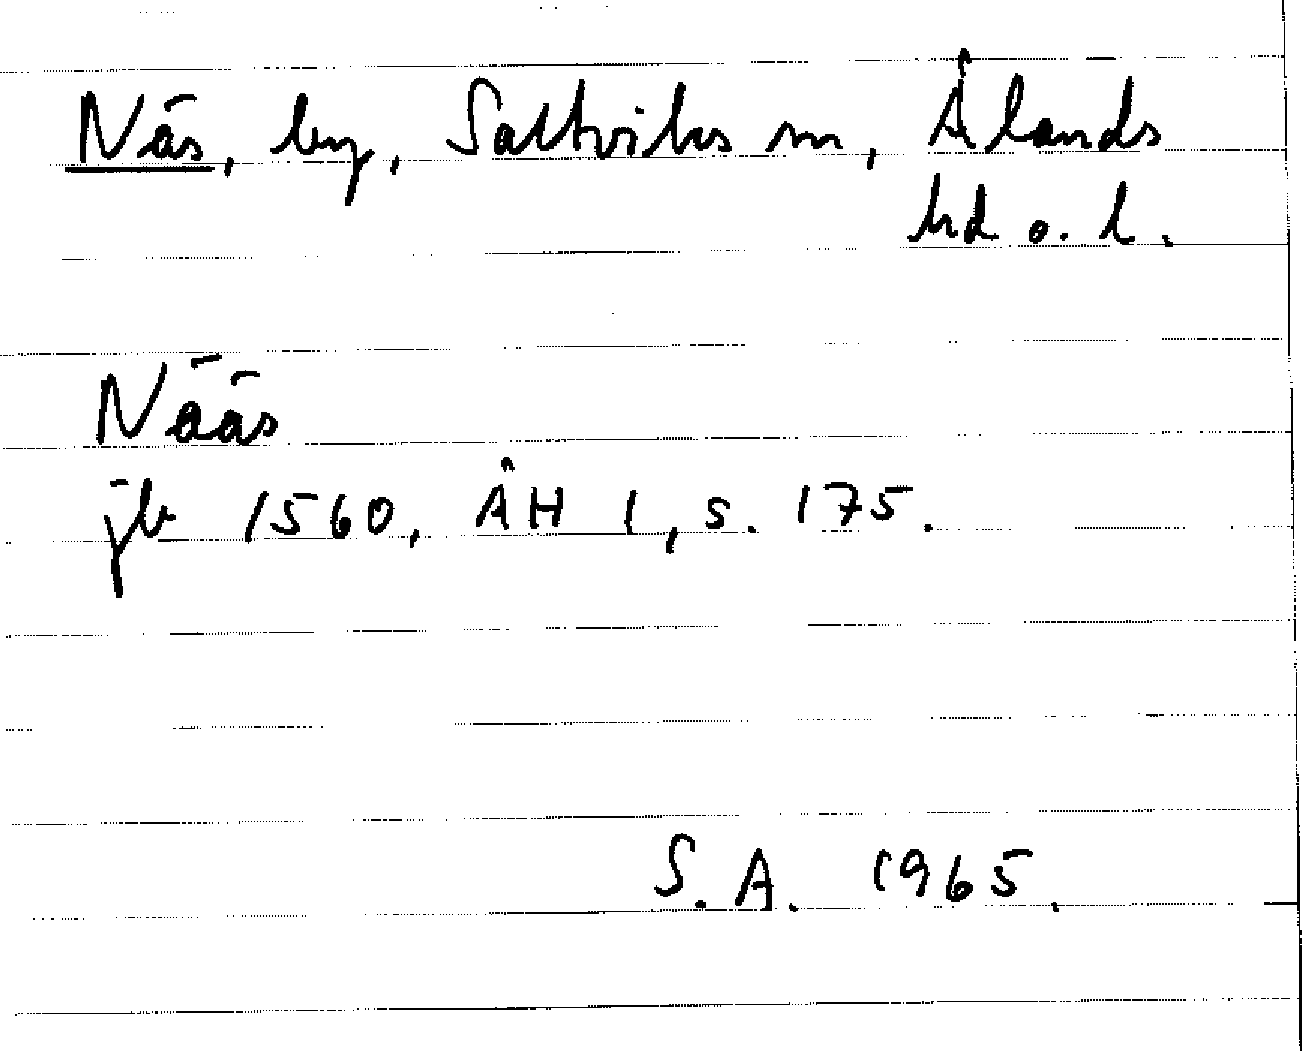 Näs, by, Saltviks sn, Ålands
hd o. l.
Nääs
jb 1560, ÅH 1, s. 175.
S.A. 1965.